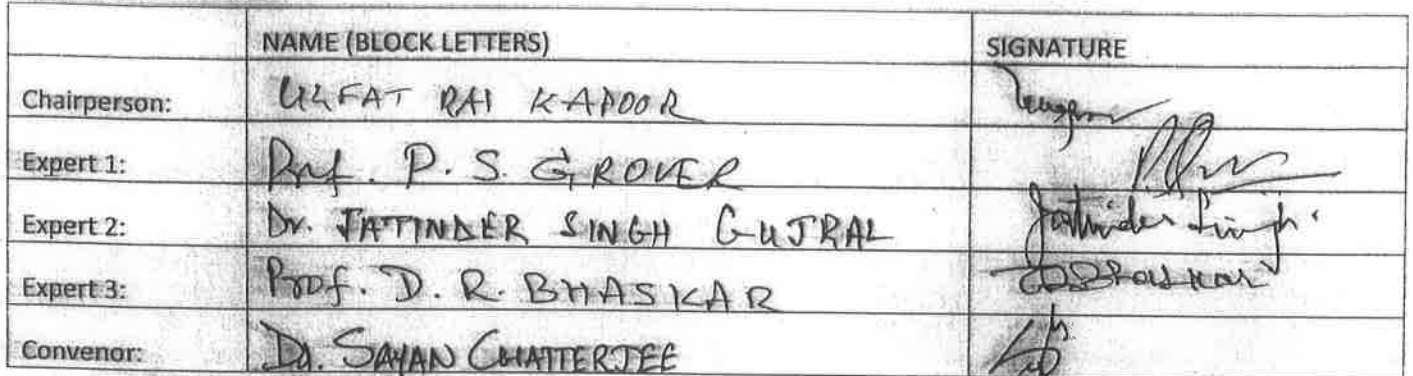 NAME (BLOCK LETTERS) SIGNATURE
Chairperson: ULFAT RAI KAPOOR
Expert 1: Prof. P. S. GROVER
Expert 2: Dr. JATINDER SINGH GUJRAL Jatinder Singh
Expert 3: Prof. D. R. BHASKAR DRBhaskar
Convenor: Dr. SAYAN CHATTERJEE